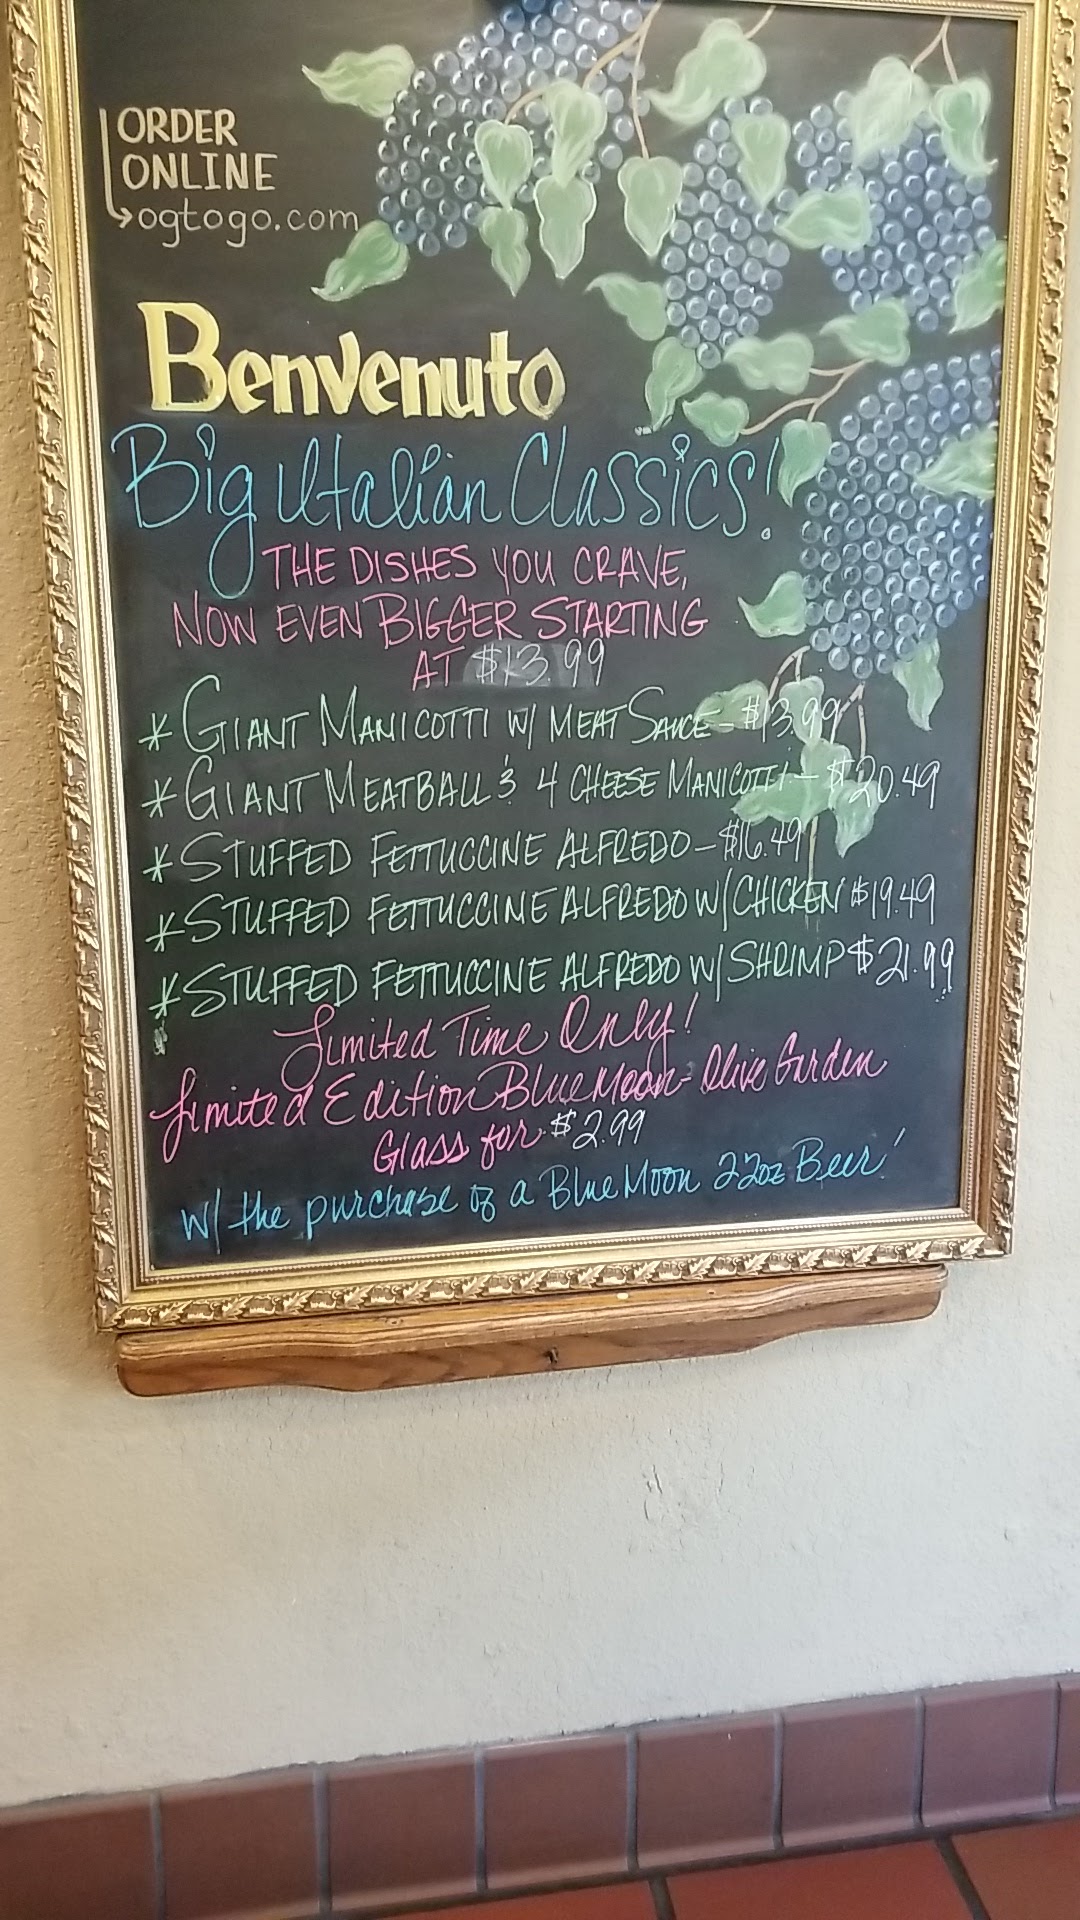 ORDER
ONLINE
ogtogo.com
Benvenuto
Big Italian Classics!
THE DISHES YOU CRAVE,
NOW EVEN BIGGER STARTING
AT $13.99
* GIANT MANICOTTI W/ MEAT SAUCE - $13.99
* GIANT MEATBALL & 4 CHEESE MANICOTTI - $20.49
* STUFFED FETTUCCINE ALFREDO - $16.49
* STUFFED FETTUCCINE ALFREDO W/ CHICKEN $19.49
* STUFFED FETTUCCINE ALFREDO W/ SHRIMP $21.99
Limited Time Only!
Limited Edition Blue Moon - Olive Garden
Glass for $2.99
W/ the purchase of a Blue Moon 22oz Beer!